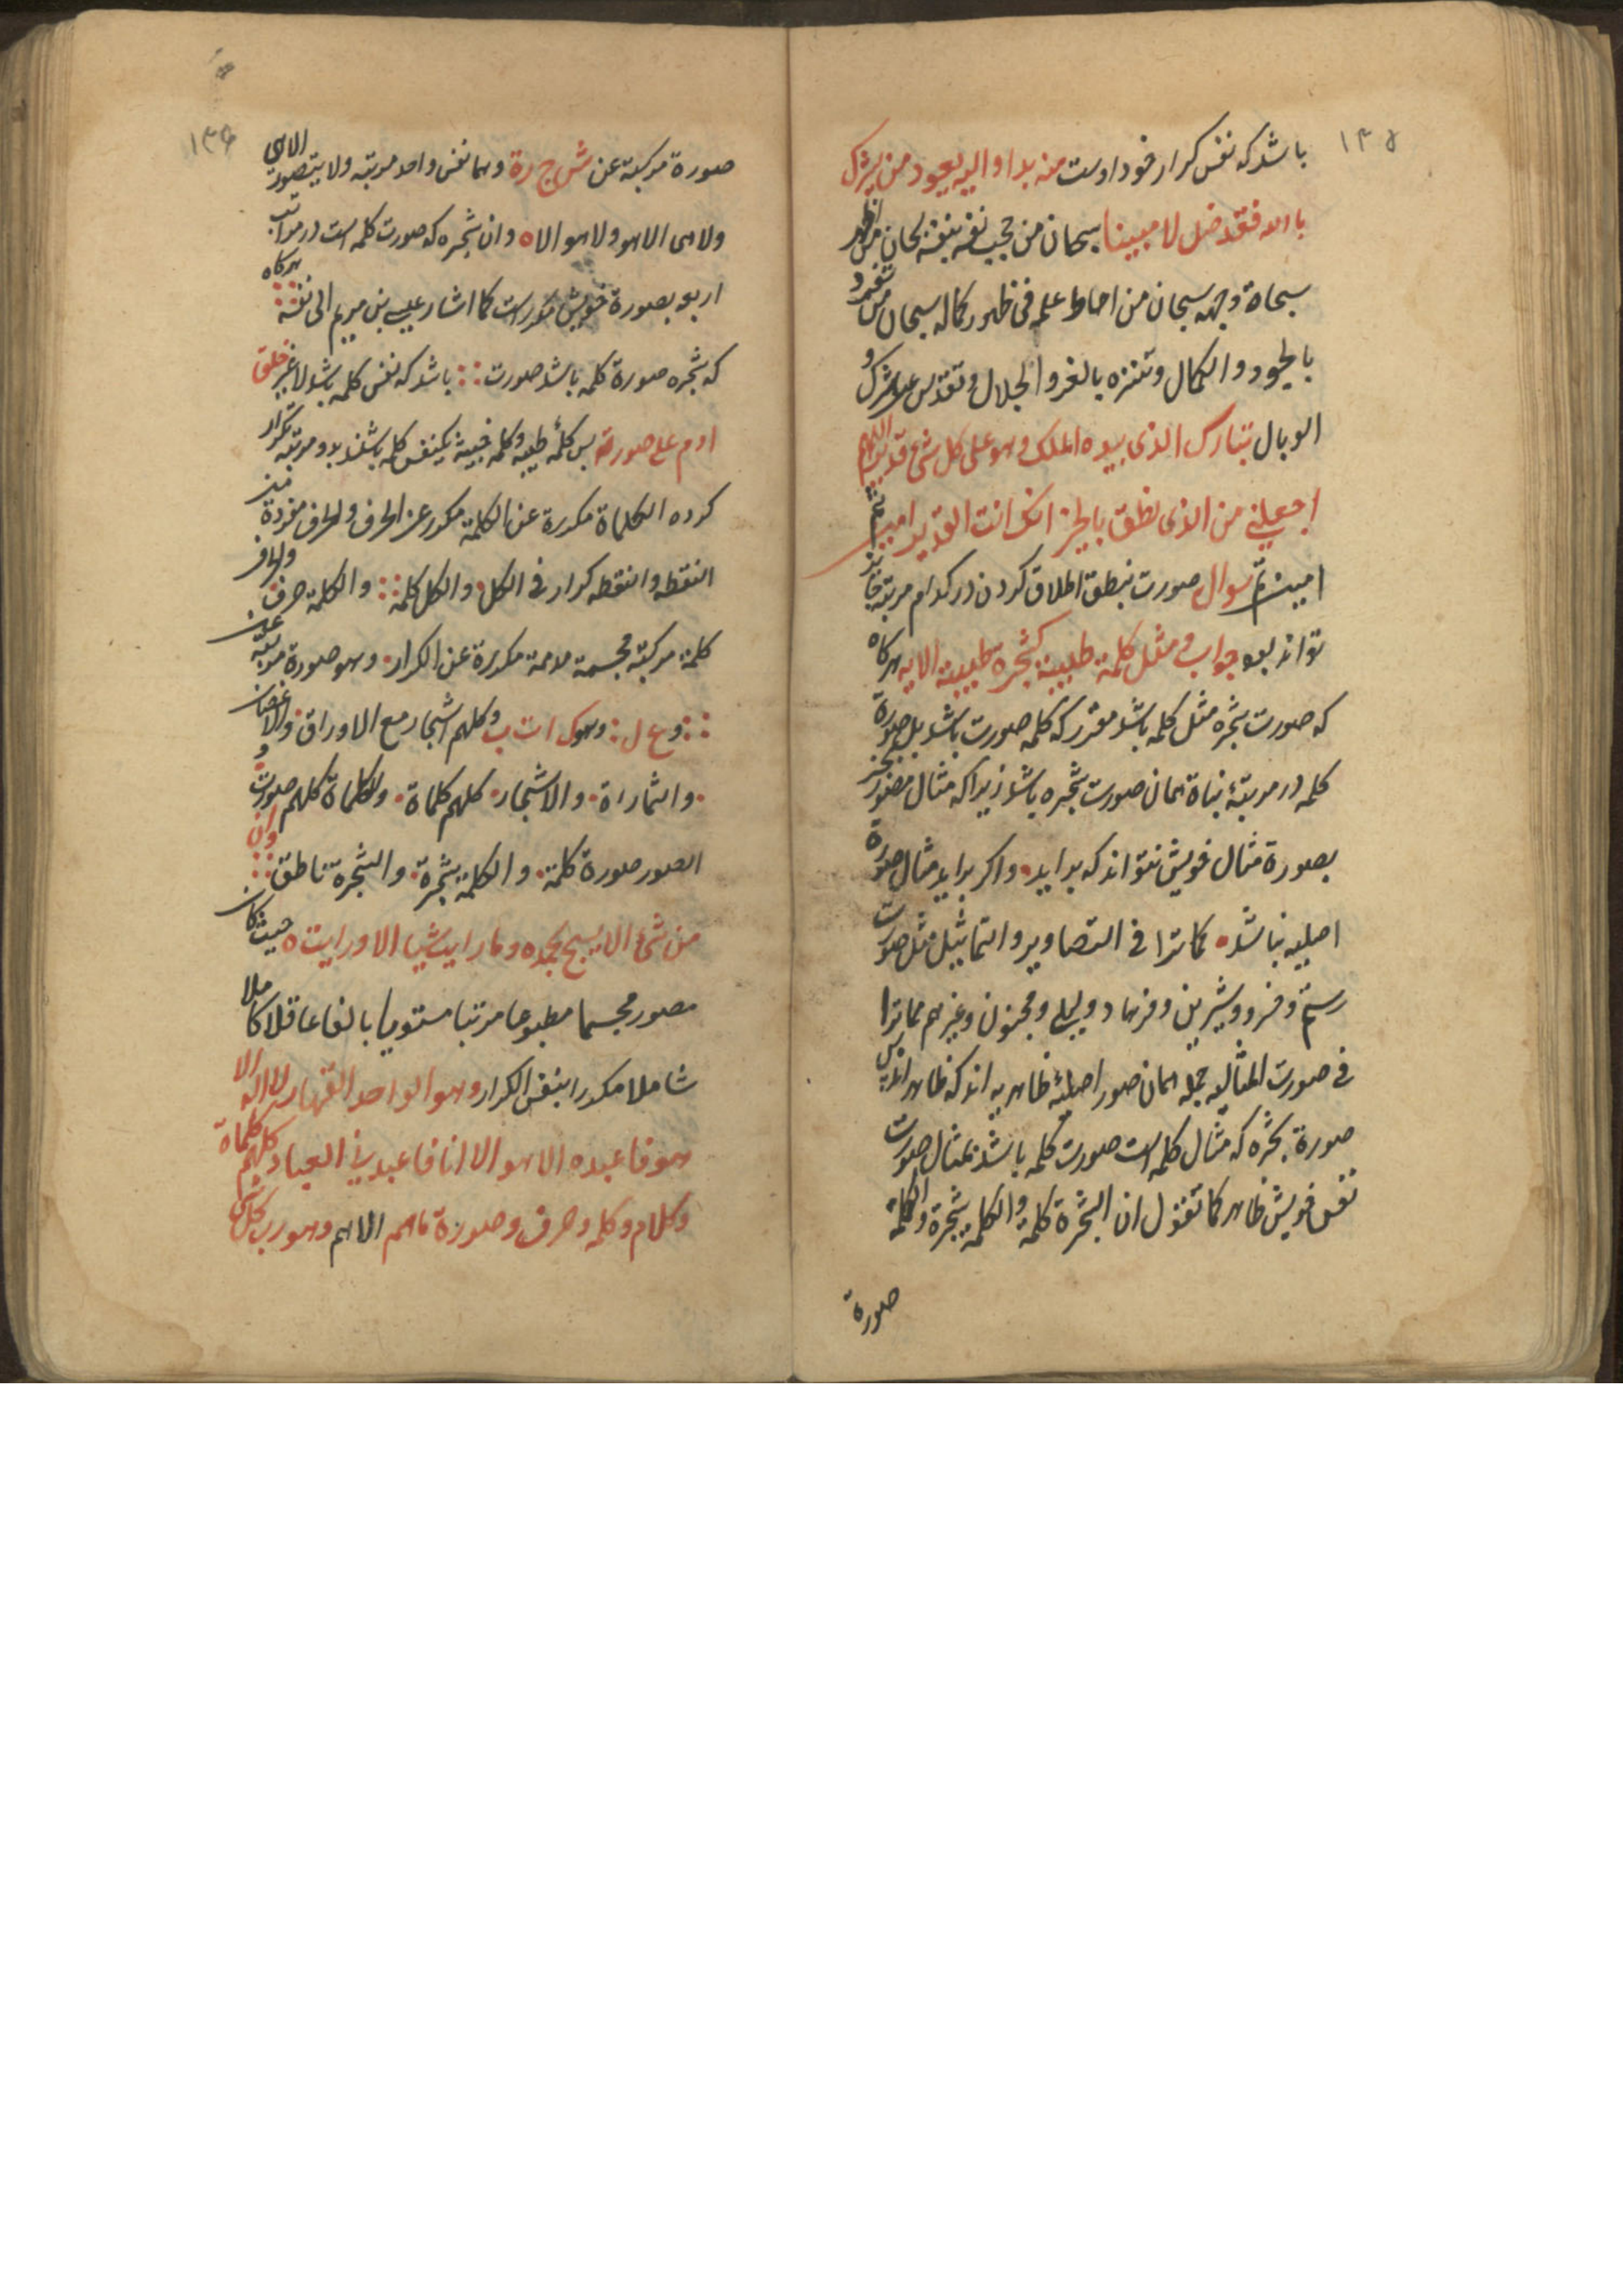 ١٣٥
باشد که نفس کرار خود اوست منه بدا و الیه یعود من یشرک
باالله فقد ضل لا مبینا سبحان من حجب نفسه بنفسه سبحان من اظهر
سبحاة وجهه سبحان من احاط علمه فی ظهور کماله سبحان من تفرد
بالجود و الکمال و تنزه بالعز و الجلال و تقدس عن الشرک و
الوبال تبارک الذی بیده الملک و هو علی کل شئ قدیر اللهم
اجعلنی من الذی نطق بالحق انک انت القدیر امین ثم
امین تم سوال صورت بنطق اطلاق کردن در کدام مرتبه جایز
تواند بود جواب و مثل کلمة طیبة کشجرة طیبة الایه هرکاه
که صورت شجره مثل کلمه باشد مقرر که کلمه صورت باشد بل صورة
کلمه در مرتبۀ نباة همان صورت شجره باشد زیرا که مثال مصور بجز
بصورة مثال خویش نتواند که براید و اکر براید مثال صورة
اصلیه نباشد کما ترا فی التصاویر و التماثیل مثل صورت
رستم و خسرو و شیرین و فرهاد و لیلی و مجنون و غیرهم مما ترا
فی صورت المثالیه جمله همان صور اصلیۀ ظاهریه اند که ظاهر اند پس
صورة شجره که مثال کلمه است صورت کلمه باشد بمثال صورت
نفس خویش ظاهر کما تقول ان الشجرة کلمة و الکلمة شجرة و الکلمة
صورة
١٣٦
صورة مرکبة عن ش ج ر ة و هما نفس واحد مرتبه و لا یتصور الا هی
و لا هی الا هو و لا هو الا ه و ان شجره که صورت کلمه است در مراتب
اربع بصورة خویش مکرر است کما اشار عیسی بن مریم الی نفسه هرکاه
که شجره صورة کلمه باشد صورت باشد که نفس کلمه باشد لا غیر خلق
ادم علی صورته پس کلمۀ طیبه و کلمه خبیثه یکنفس کلمه باشند بدو مرتبه تکرار
کرده الکلماة مکررة عن الکلمة مکرر عن الحرف و الحرف مفردة من
النقطه و النقطه کرار فی الکل و الکل کلمة و الکلمة حرف و الحرف
کلمة مرکبة مجسمة مکررة عن الکرار و هو صورة مرتبة عن
و ع ل و هو ک ا ت ب و کلهم اشجار مع الاوراق و الاغصان
و اثماراة و الاشجار کلهم کلماة و الکلماة کلهم صورت و
الصور صورة کلمة و الکلمة شجرة و الشجرة ناطق و ان
من شئ الا یسبح بحمده و ما رایت شیا الا و رایته حیث کان
مصور مجسما مطبوعا مرتبا مستویا بالغا عاقلا کاملا
شاملا مکررا بنفس الکرار و هو الواحد القهار لا اله الا
هو فاعبده الا هو الا انا فاعبدنی العباد کلهم کلماة
و کلام و کلمه و حرف و صورة ما هم الا هم و هو رب کل شئ